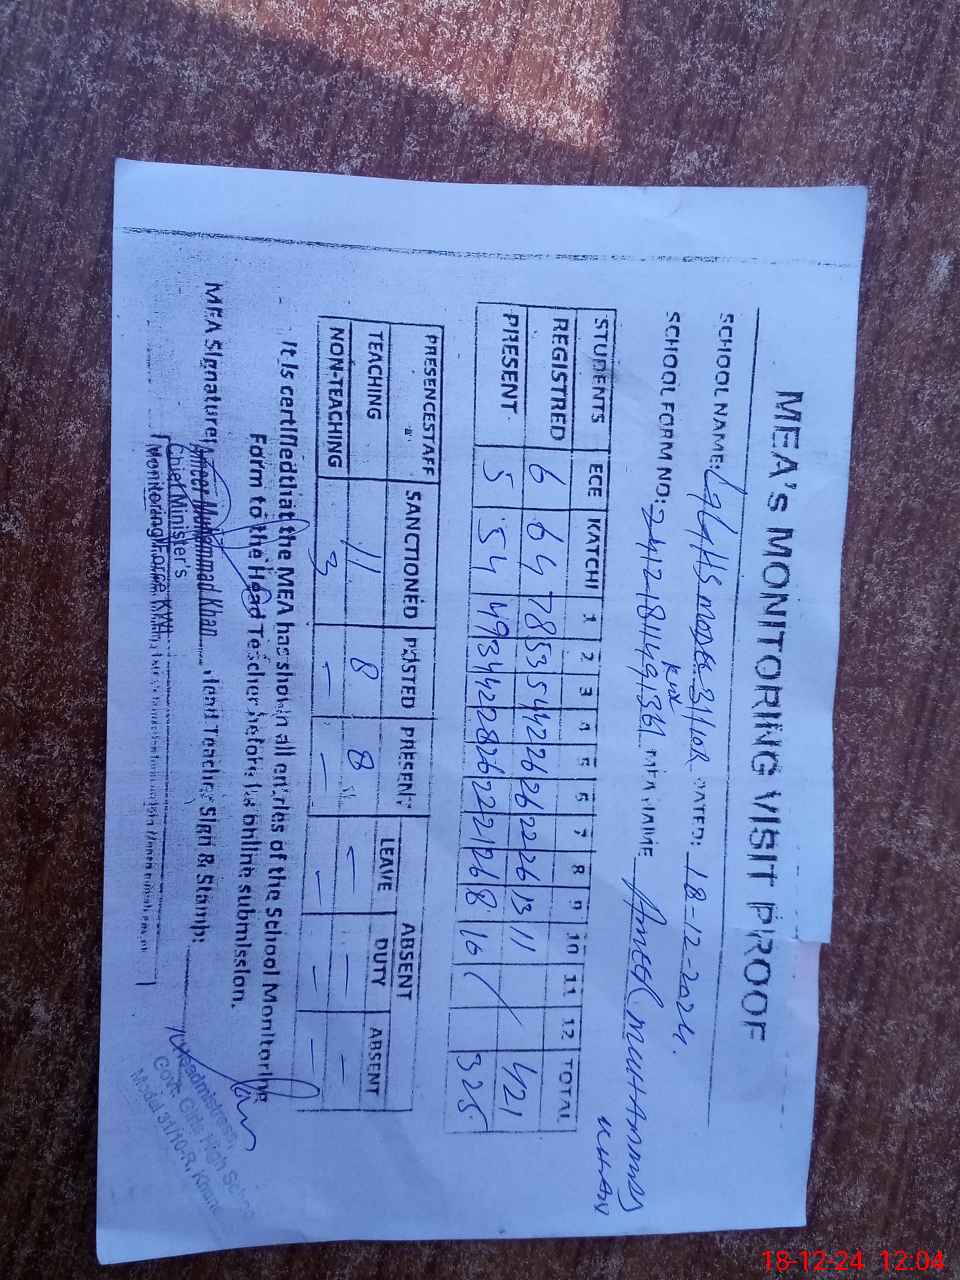 MEA'S MONITORING VISIT PROOF
SCHOOL NAME: GGHS MODEL 31/10R DATED: 18-12-2024.
KWL
SCHOOL FORM NO: NAME AMEER MUHAMMAD
KHAN
STUDENTS ECE KATCHI 1 2 3 4 5 6 7 8 9 10 11 12 TOTAL
REGISTRED 6 64 78 53 54 42 26 26 22 26 13 11 421
PRESENT 5 54 49 34 42 28 26 22 21 26 8 10 325
PRESENCESTAFF SANCTIONED POSTED PRESENT ABSENT
LEAVE DUTY ABSENT
TEACHING 11 8 8 — — —
NON-TEACHING 3 — — — — —
It is certifiedthat the MEA has shown all entries of the School Monitoring
Form to the Head Teacher before its online submission.
MEA Signature: Ameer Muhammad Khan Head Teacher Sign & Stamp:
Chief Minister's
Monitoring Force
Headmistress,
Govt. Girls High School
Model 31/10-R,
18-12-24 12:04